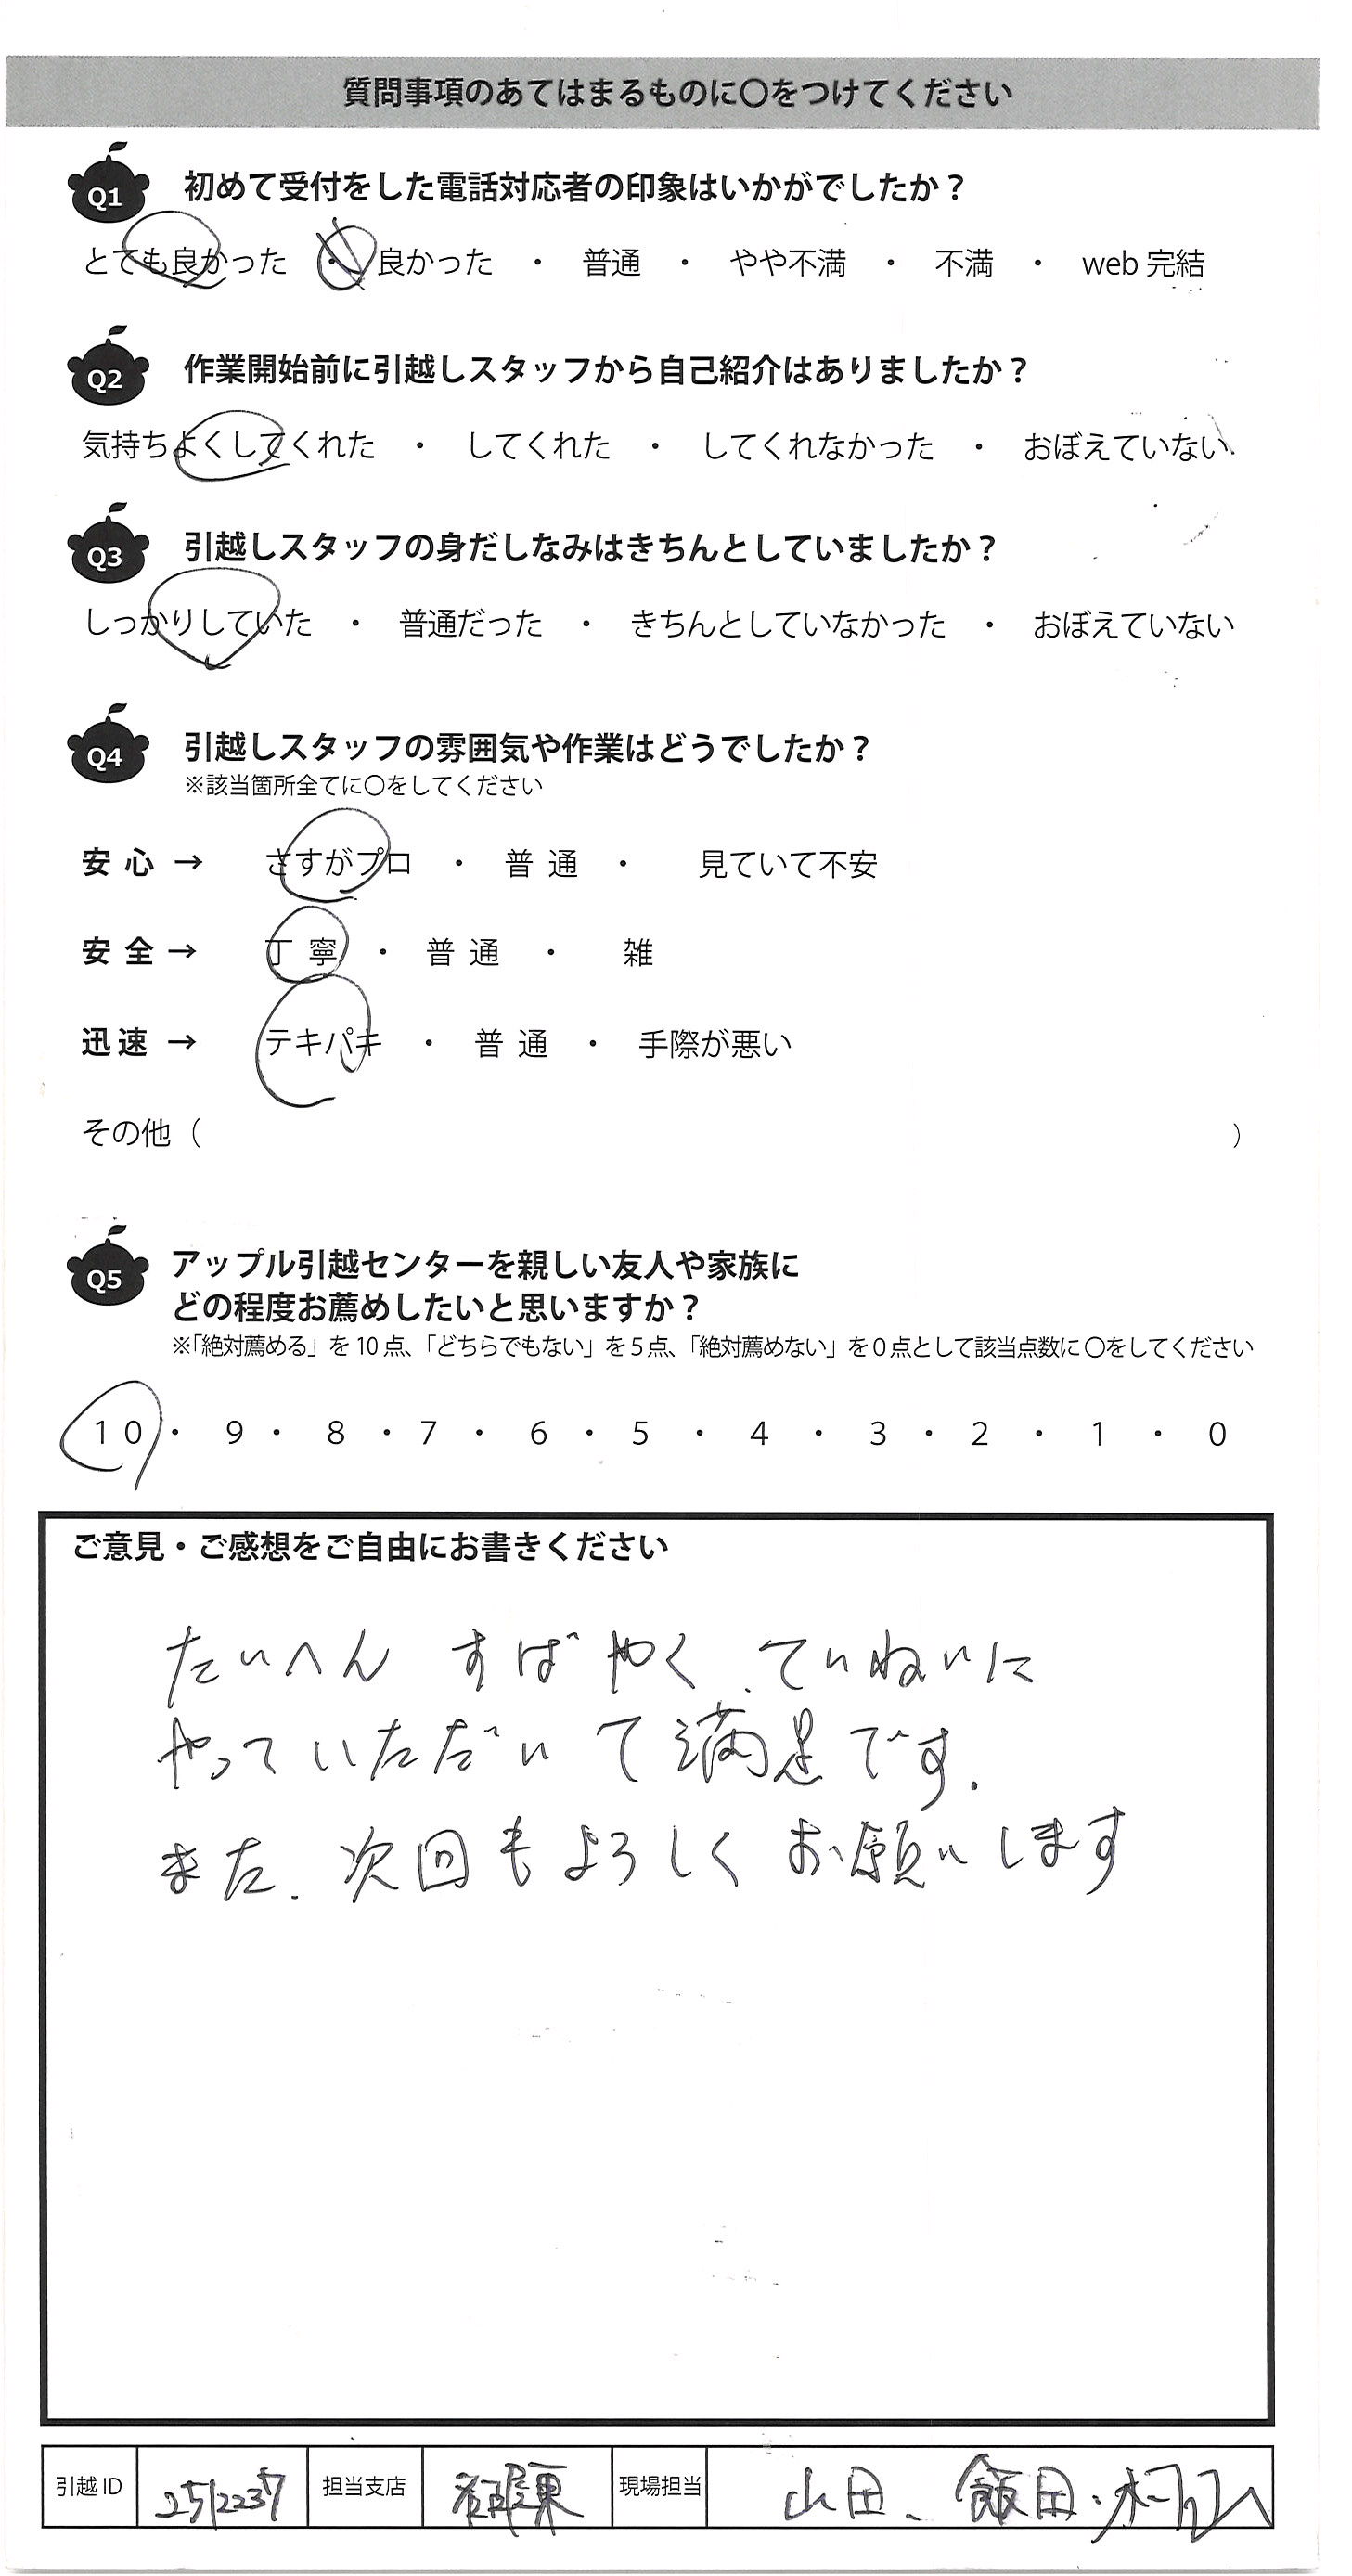 質問事項のあてはまるものに〇をつけてください
Q1 初めて受付をした電話対応者の印象はいかがでしたか？
とても良かった ・ 良かった ・ 普通 ・ やや不満 ・ 不満 ・ web 完結
Q2 作業開始前に引越しスタッフから自己紹介はありましたか？
気持ちよくしてくれた ・ してくれた ・ してくれなかった ・ おぼえていない
Q3 引越しスタッフの身だしなみはきちんとしていましたか？
しっかりしていた ・ 普通だった ・ きちんとしていなかった ・ おぼえていない
Q4 引越しスタッフの雰囲気や作業はどうでしたか？
※該当箇所全てに〇をしてください
安心 → さすがプロ ・ 普通 ・ 見ていて不安
安全 → 丁寧 ・ 普通 ・ 雑
迅速 → テキパキ ・ 普通 ・ 手際が悪い
その他（ ）
Q5 アップル引越センターを親しい友人や家族に
どの程度お薦めしたいと思いますか？
※「絶対薦める」を10点、「どちらでもない」を5点、「絶対薦めない」を0点として該当点数に〇をしてください
10 ・ 9 ・ 8 ・ 7 ・ 6 ・ 5 ・ 4 ・ 3 ・ 2 ・ 1 ・ 0
ご意見・ご感想をご自由にお書きください
たいへん すばやく、ていねいに
やっていただいて満足です.
また. 次回もよろしくお願いします
引越ID 2512237 担当支店 名古屋東 現場担当 山田、飯田・